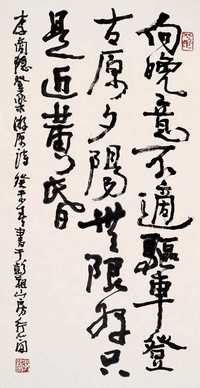 向晚意不適驅車登
古原夕陽無限好只
是近黄昏
李商隱登樂游原詩 書于 山房